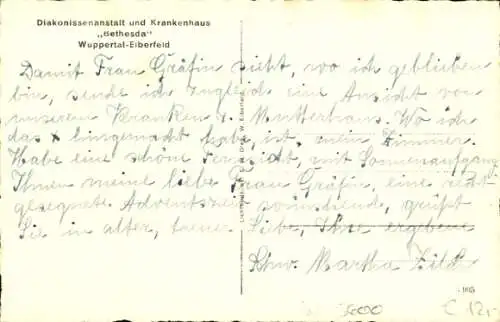 Diakonissenanstalt und Krankenhaus
„Bethesda"
Wuppertal-Elberfeld
Damit Frau Gräfin sieht, wo ich geblieben
bin, sende ich zugleich eine Ansicht von
unserem Kranken u. Mutterhaus. Wo ich
das x hingemacht habe, ist mein Zimmer.
Habe eine schöne Fernsicht, mit Sonnenaufgang.
Ihnen meine liebe Frau Gräfin, eine recht
gesegnete Adventszeit wünschend, grüßt
Sie in alter, treuer Liebe, Ihre ergebene
Schw. Martha